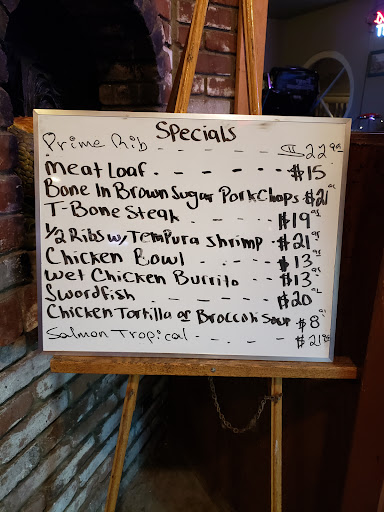 Specials
Prime Rib - - - - - $22
Meat Loaf - - - - - - $15
Bone In Brown Sugar Pork Chops $21
T-Bone Steak - - - - $19
1/2 Ribs w/ Tempura Shrimp - $21
Chicken Bowl - - - - $13
Wet Chicken Burrito - - - $13
Swordfish - - - - - $20
Chicken Tortilla or Broccoli Soup $8
Salmon Tropical - - - - $21